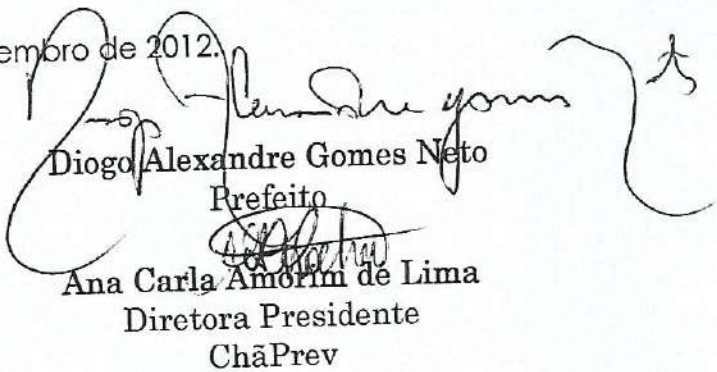 embro de 2012.
Diogo Alexandre Gomes Neto
Prefeito
Ana Carla Amorim de Lima
Diretora Presidente
ChãPrev